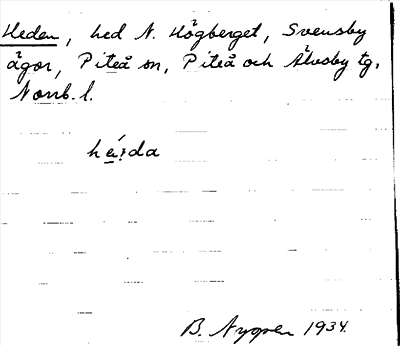 Heden, hed N. Högberget, Svensby
ägor, Piteå sn, Piteå och Älvsby tg.
Norrb. l.
B. Nygren 1934.